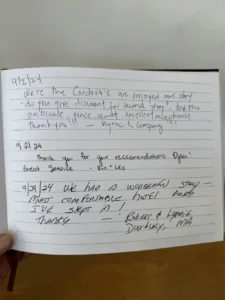 9/2/24
We're the Cordova's we enjoyed our stay
do you give discount for second stay!, but the
ambiance, excellent receptionist
thank you!!! - & company !!!
9/2/24
Thank you for your recommendations Dylan!
Great Service -
9/29/24 WE HAD A WONDERFUL STAY -
MOST COMFORTABLE HOTEL BEDS
I'VE SLEPT IN!
THANKS -
DUXBURY, MA